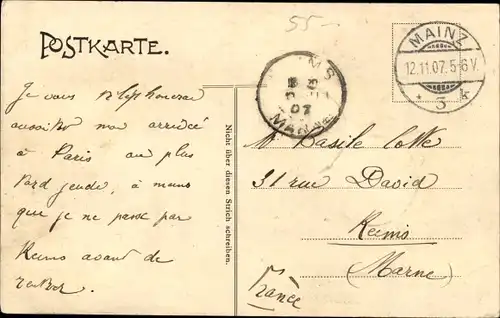 55-
POSTKARTE.
MAINZ
12.11.07. 5-6 V.
* 3 k
07
MARNE
Je vous
aussitôt mon arrivée
à Paris au plus
tard jeudi, à moins
que je ne passe par
Reims avant de
Nicht über diesen Strich schreiben.
Mr Basile
31 rue David
Reims
(Marne)
France